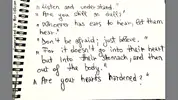 " Listen and understand."
" Are you still so dull?"
" Whoever has ears to hear, let them
hear."
" Don't be afraid; just believe. "
" For it doesn't go into their heart
but into their stomach, and then
out of the body. "
" Are your hearts hardened? "